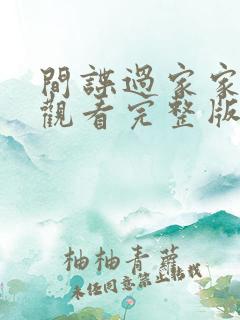 間諜過家家
觀看完整版
柚柚青蘿
未经同意禁止转载